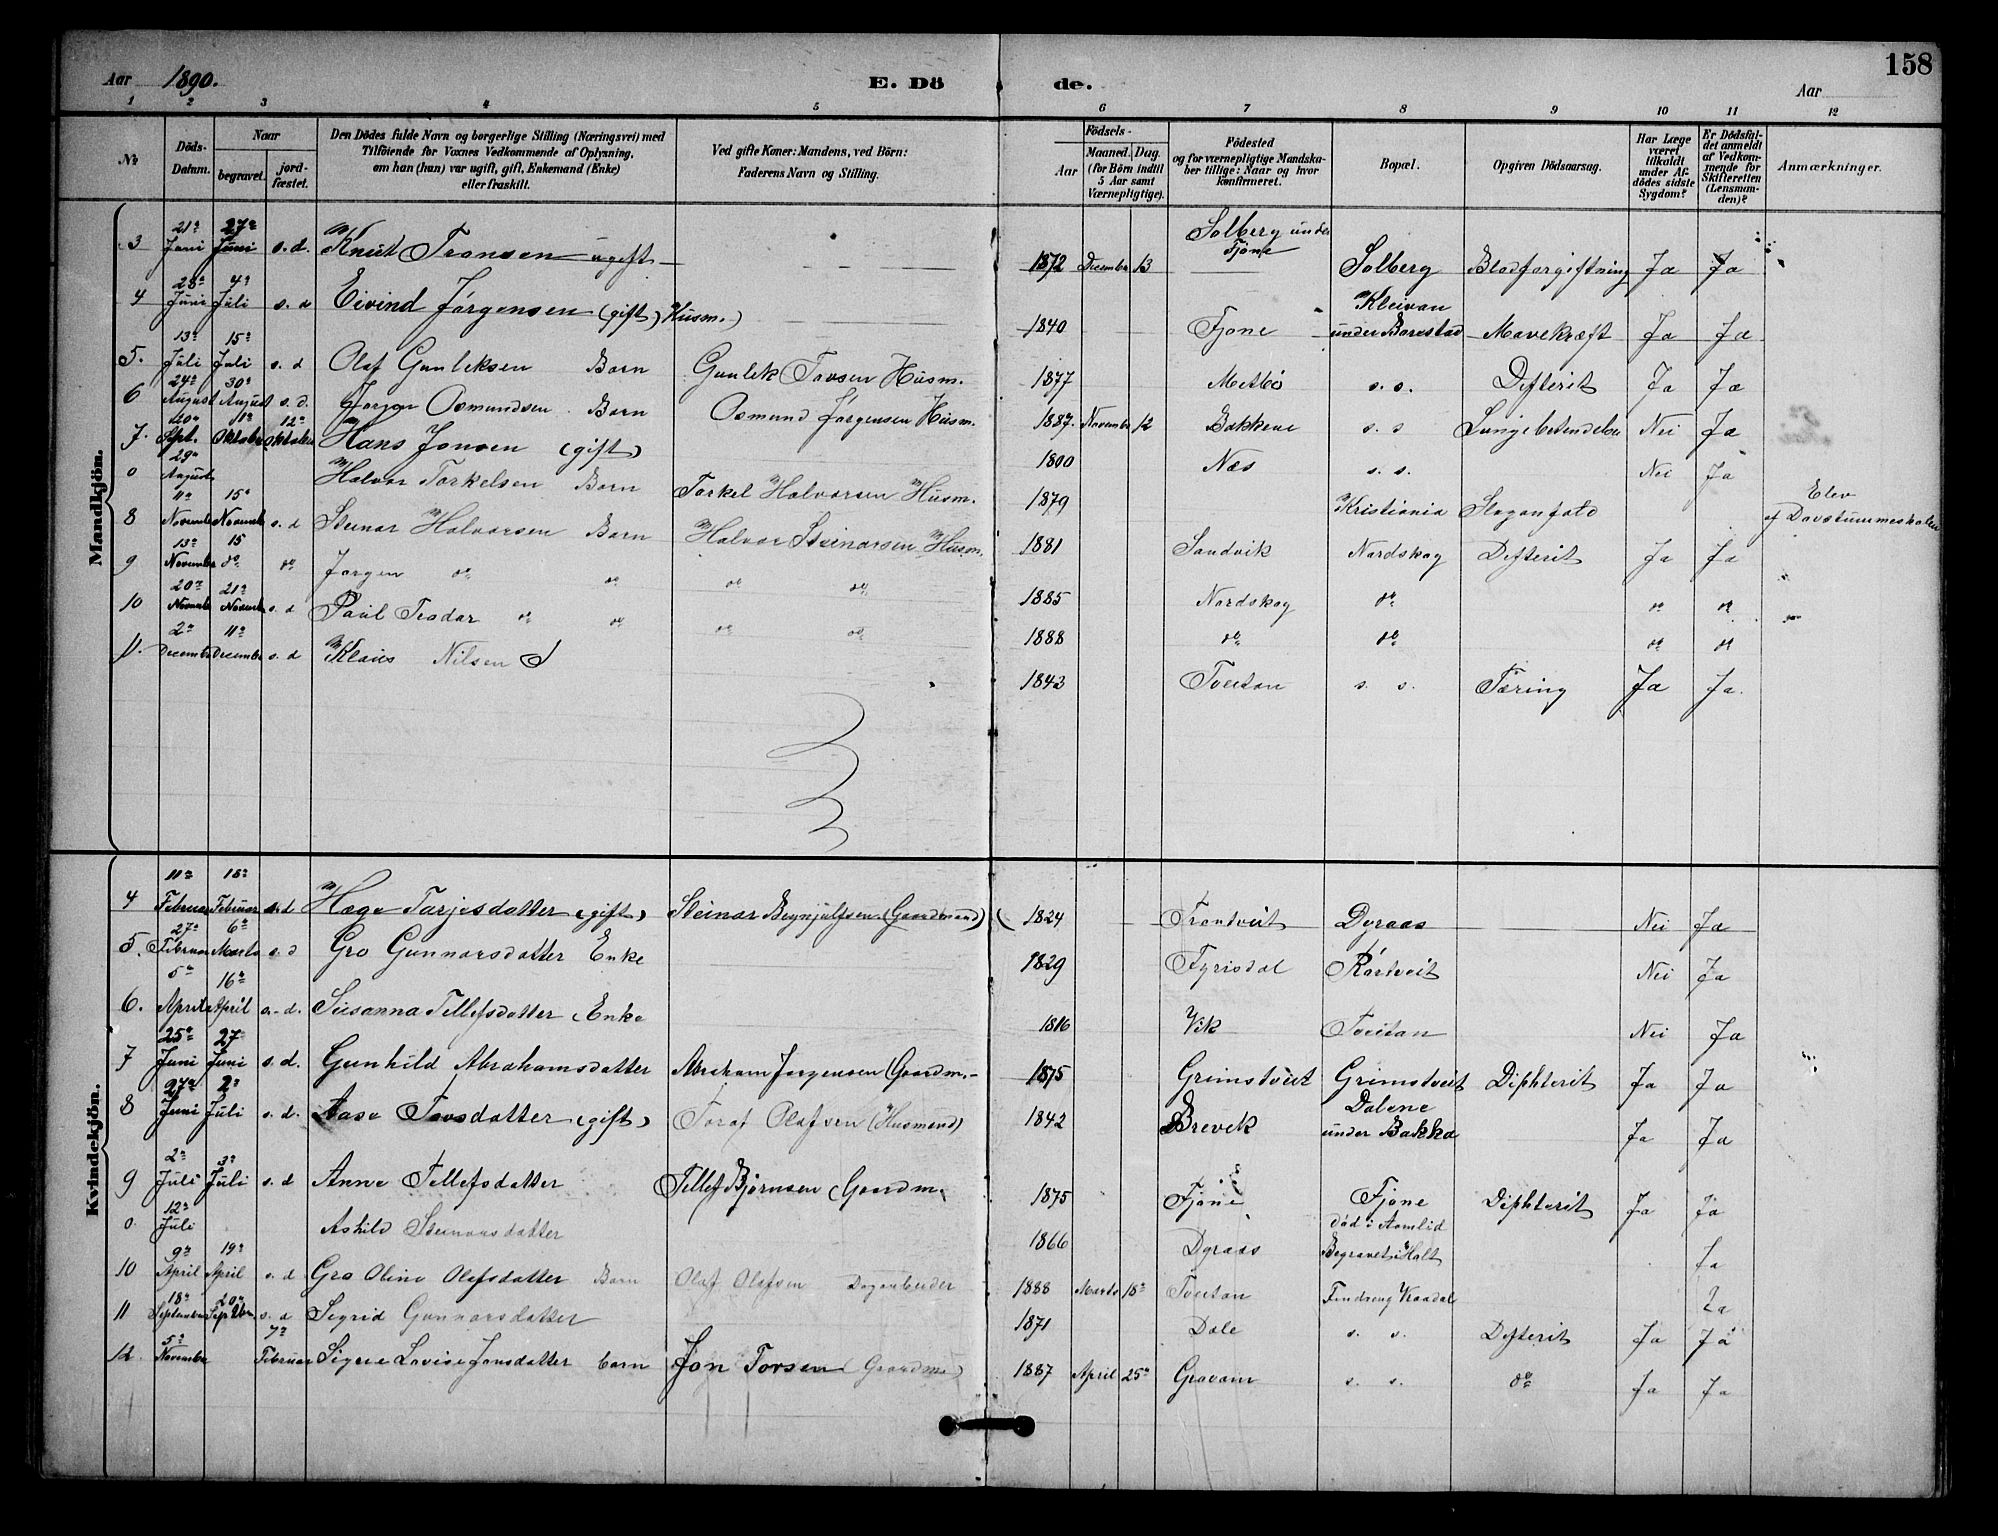 158
Aar 1890. E. Dö de. Aar
1 2 3 4 5 6 7 8 9 10 11 12
No
Döds-Datum.
Naar
begravet.
jord-fæstet.
Den Dödes fulde Navn og borgerlige Stilling (Næringsvei) med
Tilföiende for Voxnes Vedkommende af Oplysning,
om han (hun) var ugift, gift, Enkemand (Enke)
eller fraskilt.
Ved gifte Koner: Mandens, ved Börn:
Faderens Navn og Stilling.
Födsels-
Aar
Maaned. Dag.
(for Börn indtil
5 Aar samt
Værnepligtige).
Födested
og for værnepligtige Mandska-
ber tillige: Naar og hvor
konfirmeret.
Bopæl.
Opgiven Dödsaarsag.
Har Læge
været
tilkaldt
under Af-
dödes sidste
Sygdom?
Er Dödsfal-
det anmeldt
af Vedkom-
mende for
Skifteretten
(Lensman-
den)?
Anmærkninger.
Mandkjön.
3 21de Juni 27de Juni s. d. Knut Tronsen ugift 1872 December 13 Solberg under Fjone Solberg Blodforgiftning Ja Ja
4 28de Juni 4de Juli s. d Eivind Jørgensen (gift) Husm.) 1840 Fjone Kleivan under Barestad Mavekræft Ja Ja
5. 13de Juli 15de Juli s. d Olaf Gunleksen Barn Gunlek Tovsen Husm. 1877 Metbø s. s. Difterit Ja Ja
6 24de August 30de August s. d. Jørgen Osmundsen Barn Osmund Jørgensen Husm. 1887. November 12 Bakkene s. s Lungebetendelse Nei Ja
7. 20de Sept. 11te Oktober 12te Oktober Hans Jonsen (gift) 1800 Næs s. s. Nei Ja
0 29de August Halvor Torkelsen Barn Torkel Halvorsen Husm. 1879 Kristiania Elev af Døvstummeskolen
8 11te November 15de November s. d Steinar Halvorsen Barn Halvor Steinarsen Husm. 1881 Sandvik Nordskog Difterit Ja Ja
9 13de November 15 do do Jørgen do do do do 1885 Nordskog do do do
10 20de November 21de November s. d Paul Trodar do do do do 1888 do do do do
11. 2den December 11te December s. d Klaus Nilsen 1843 Tveitan s. s. Tæring Ja Ja.
Kvindekjön.
4 11te Februar 15de Februar s. d Hæge Tarjesdatter (gift) Steinar Brynjulfsen (Gaardmand) 1824 Trontveit Dyraas Nei Ja
5. 27de Februar 6te Marts s. d Gro Gunnarsdatter Enke 1829 Fyrisdal Rørtveit Nei Ja
6. 5te April 16de April s. d. Susanna Tellefsdatter Enke 1816 Vik Tveitan Nei Ja
7 25de Juni 27 Juni s. d. Gunhild Abrahamsdatter Abraham Jørgensen (Gaardm. 1875 Grimstveit Grimstveit Diphterit Ja Ja
8 27de Juni 2den Juli s. d. Aase Tovsdatter (gift) Toraf Olafsen (Husmand) 1842 Brevek Dalene under Bakka Ja Ja
9 2den Juli 3die Juli s. d Anne Tellefsdatter Tellef Bjørnsen (Gaardm. 1875 Fjone Fjone Diphterit Ja Ja
0. 12te Juli Askild Steinarsdatter 1866 Dyraas Død i Aamlid Begravet i Holt Ja
10 9de April 19de April s. d Gro Oline Olafsdatter Barn Olaf Olafsen Dagarbeider 1888 Marts 15de Tveitan Findreng Kraadal Ja
11 18de September 20de September s. d Sigrid Gunnarsdatter 1871 Dale s. s. Difterit Ja Ja
12. 5te November 7de Februar Signe Lovise Jonsdatter barn Jon Torsen (Gaardm.) 1887 April 25de Gravann s. s. do Ja Ja